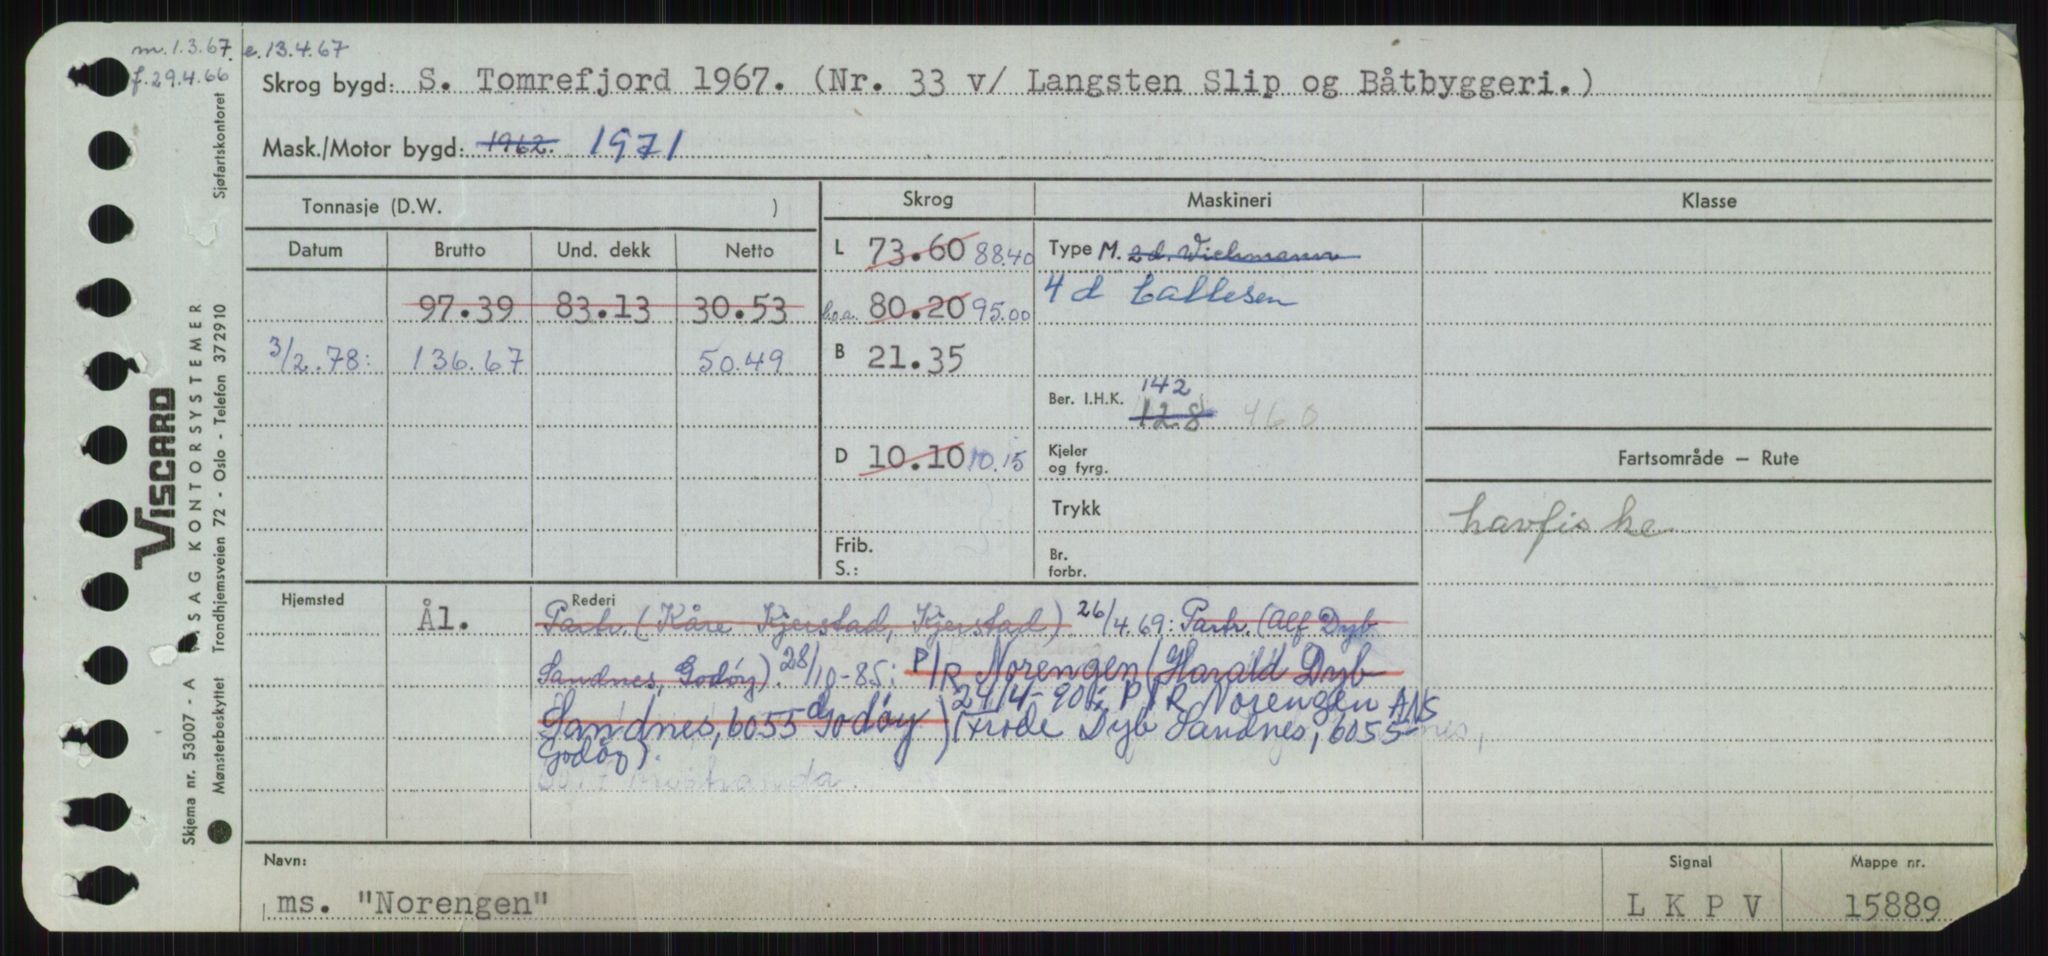 m. 1.3.67. e. 13.4.67
f. 29.4.66
Skrog bygd: S. Tomrefjord 1967. (Nr. 33 v/ Langsten Slip og Båtbyggeri.)
Mask./Motor bygd: 1962. 1971
Tonnasje (D.W. )
Skrog
Maskineri
Klasse
Datum Brutto Und. dekk Netto
97.39 83.13 30.53
3/2.78: 136.67 50.49
L 73.60 88.40
l.o.a. 80.20 95.00
B 21.35
D 10.10 10.15
Frib.
S.:
Type M. 2d. Wichmann
4 d Callesen
142
Ber. I.H.K. 128 460
Kjeler
og fyrg.
Trykk
Br.
forbr.
Fartsområde — Rute
havfiske
Hjemsted
Ål.
Rederi
Partr. (Kåre Kjerstad, Kjerstad) 26/4.69: Partr. (Alf Dyb
Sandnes, Godøy). 28/10-85: P/R Norengen (Harald Dyb
Sandnes, 6055 Godøy) 24/4-90: P/R Norengen ANS
(Frode Dyb Sandnes, 6055
Godøy).
Navn:
ms. "Norengen"
Signal
L K P V
Mappe nr.
15889
VISCARD
Skjema nr. 53007 - A VISAG KONTORSYSTEMER
Mønsterbeskyttet Trondhjemsveien 72 - Oslo - Telefon 372910
Sjøfartskontoret